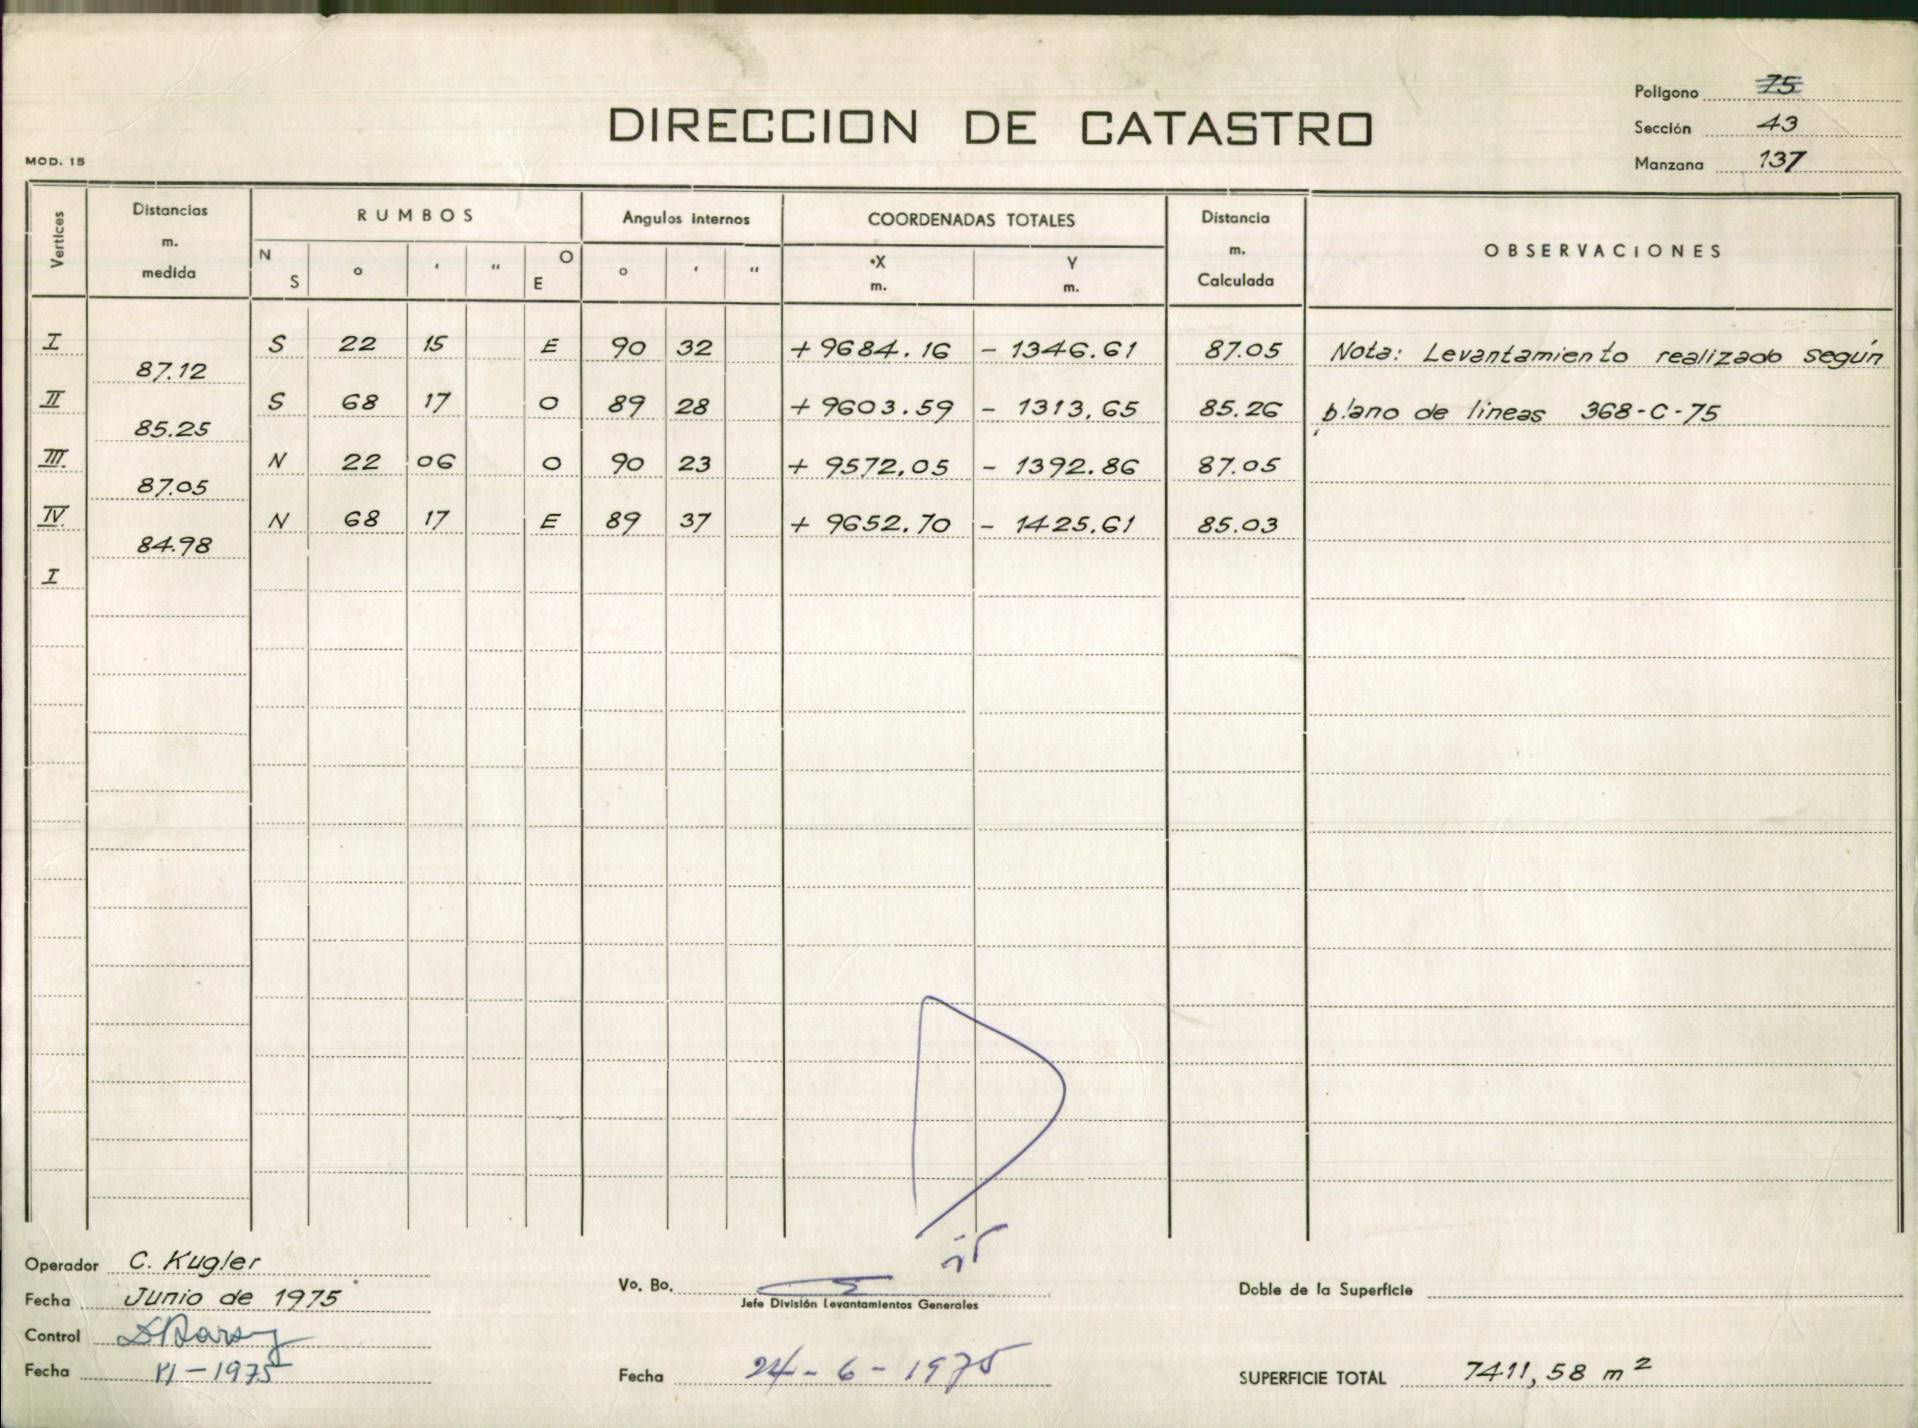 Poligono 75
DIRECCION DE CATASTRO
Sección 43
MOD. 15
Manzana 137
Vertices Distancias m. medida RUMBOS Angulos internos COORDENADAS TOTALES Distancia m. Calculada OBSERVACIONES
N S o ' " O E o ' " X m. Y m.
I S 22 15 E 90 32 + 9684.16 - 1346.61 87.05 Nota: Levantamiento realizado según
87.12
II S 68 17 O 89 28 + 9603.59 - 1313,65 85.26 plano de lineas 368-C-75
85.25
III N 22 06 O 90 23 + 9572,05 - 1392.86 87.05
87.05
IV N 68 17 E 89 37 + 9652.70 - 1425.61 85.03
84.98
I
Operador C. Kugler
Fecha Junio de 1975
Vo. Bo.
Jefe División Levantamientos Generales
Doble de la Superficie
Control
Fecha VI - 1975
Fecha 24 - 6 - 1975
SUPERFICIE TOTAL 7411,58 m²